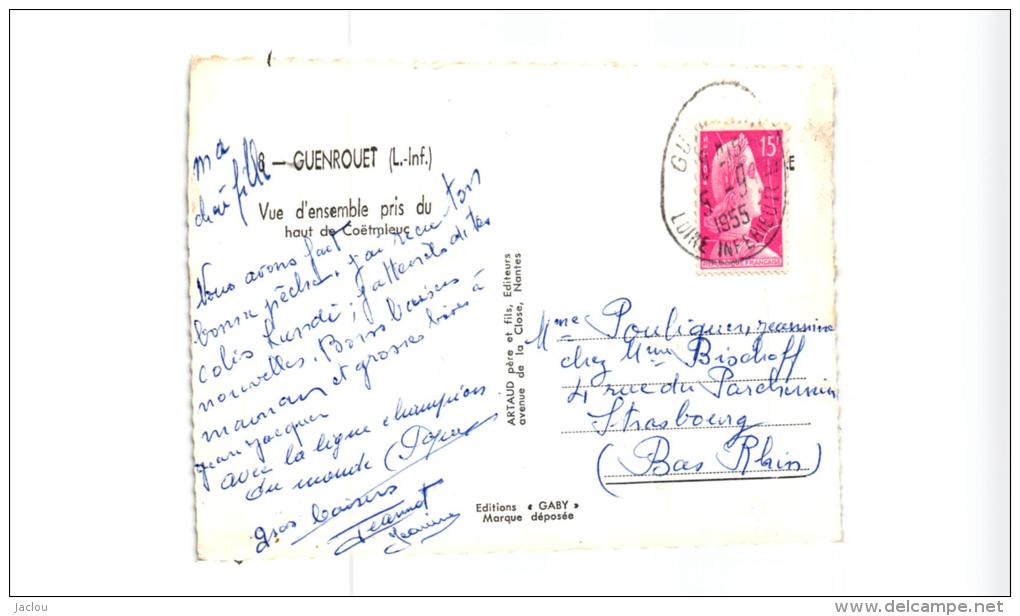 8 — GUENROUET (L.-Inf.)
Vue d'ensemble pris du
haut de Coëtmleuc
ma
chère fille
Nous avons fait
bonne pêche, j'ai recu ton
colis Lundi; j'attends de tes
nouvelles. Bons baisers
maman et grosses bises à
Jean Jacques
avec la ligne champion
du monde
gros baisers
Jeannot
Jeanine
ARTAUD père et fils, Editeurs
avenue de la Close, Nantes
Editions « GABY »
Marque déposée
15F
REPUBLIQUE FRANÇAISE
GU
15
5 -9
1955
LOIRE INFERIEURE
RE
Mme Pouliquen, Jeannine
chez Mme Bischoff
4 rue du Parchemin
Strasbourg
(Bas Rhin)
Jaclou
www.delcampe.net